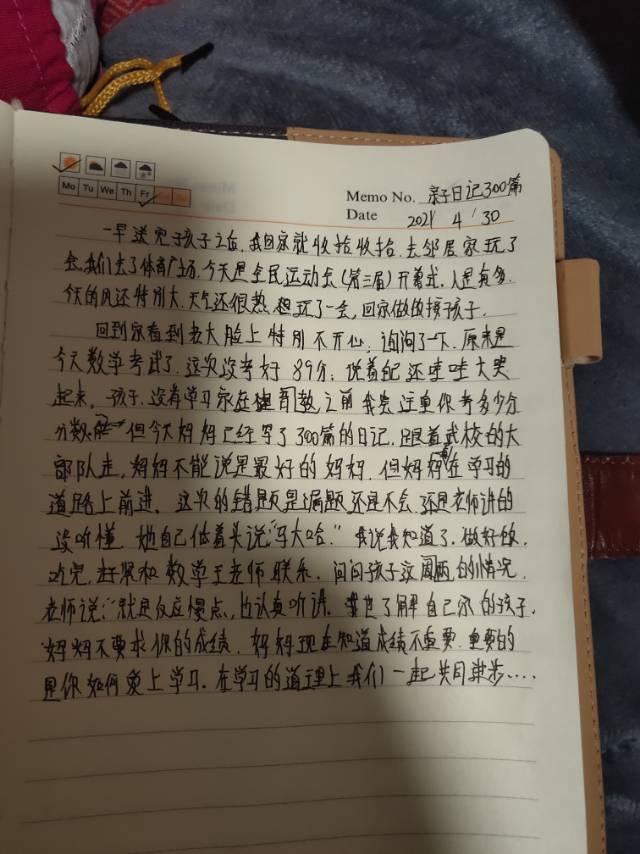 Mo Tu We Th Fr
Memo No. 亲子日记300篇
Date 2021 4 30
一早送完孩子之后,我回家就收拾收拾,去邻居家玩了
会,我们去了体育广场,今天是全民运动会(第三届)开幕式,人是真多,
今天的风还特别大,天气还很热,想玩了一会,回家做饭接孩子.
回到家看到老大脸上特别不开心,询问了一下,原来是
今天数学考试了,这次没考好89分;说着说还哇哇大哭
起来,孩子,没有学习家庭教育之前我会注重你考多少分
分数 但今天妈妈已经写了300篇的日记,跟着武校的大
部队走,妈妈不能说是最好的妈妈,但妈妈在学习的
道路上前进,这次的错题是漏题还是不会,还是老师讲的
没听懂,她自己低着头说"马大哈."我说我知道了,做好饭,
吃完,赶紧和数学王老师联系,问问孩子这周的情况,
老师说:"就是反应慢点,也认真听讲,我也了解自己家的孩子,
妈妈不要求你的成绩,妈妈现在知道成绩不重要,重要的
是你如何爱上学习,在学习的道理上我们一起共同进步....